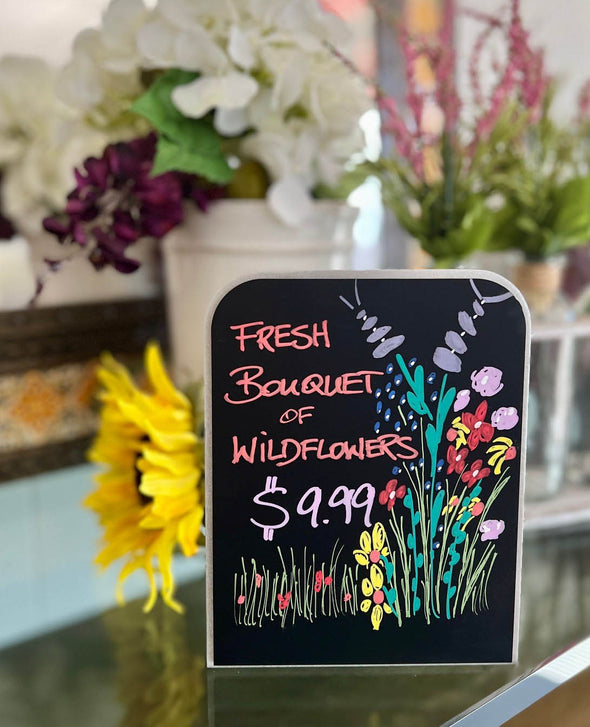 FRESH
BOUQUET
OF
WILDFLOWERS
$9.99